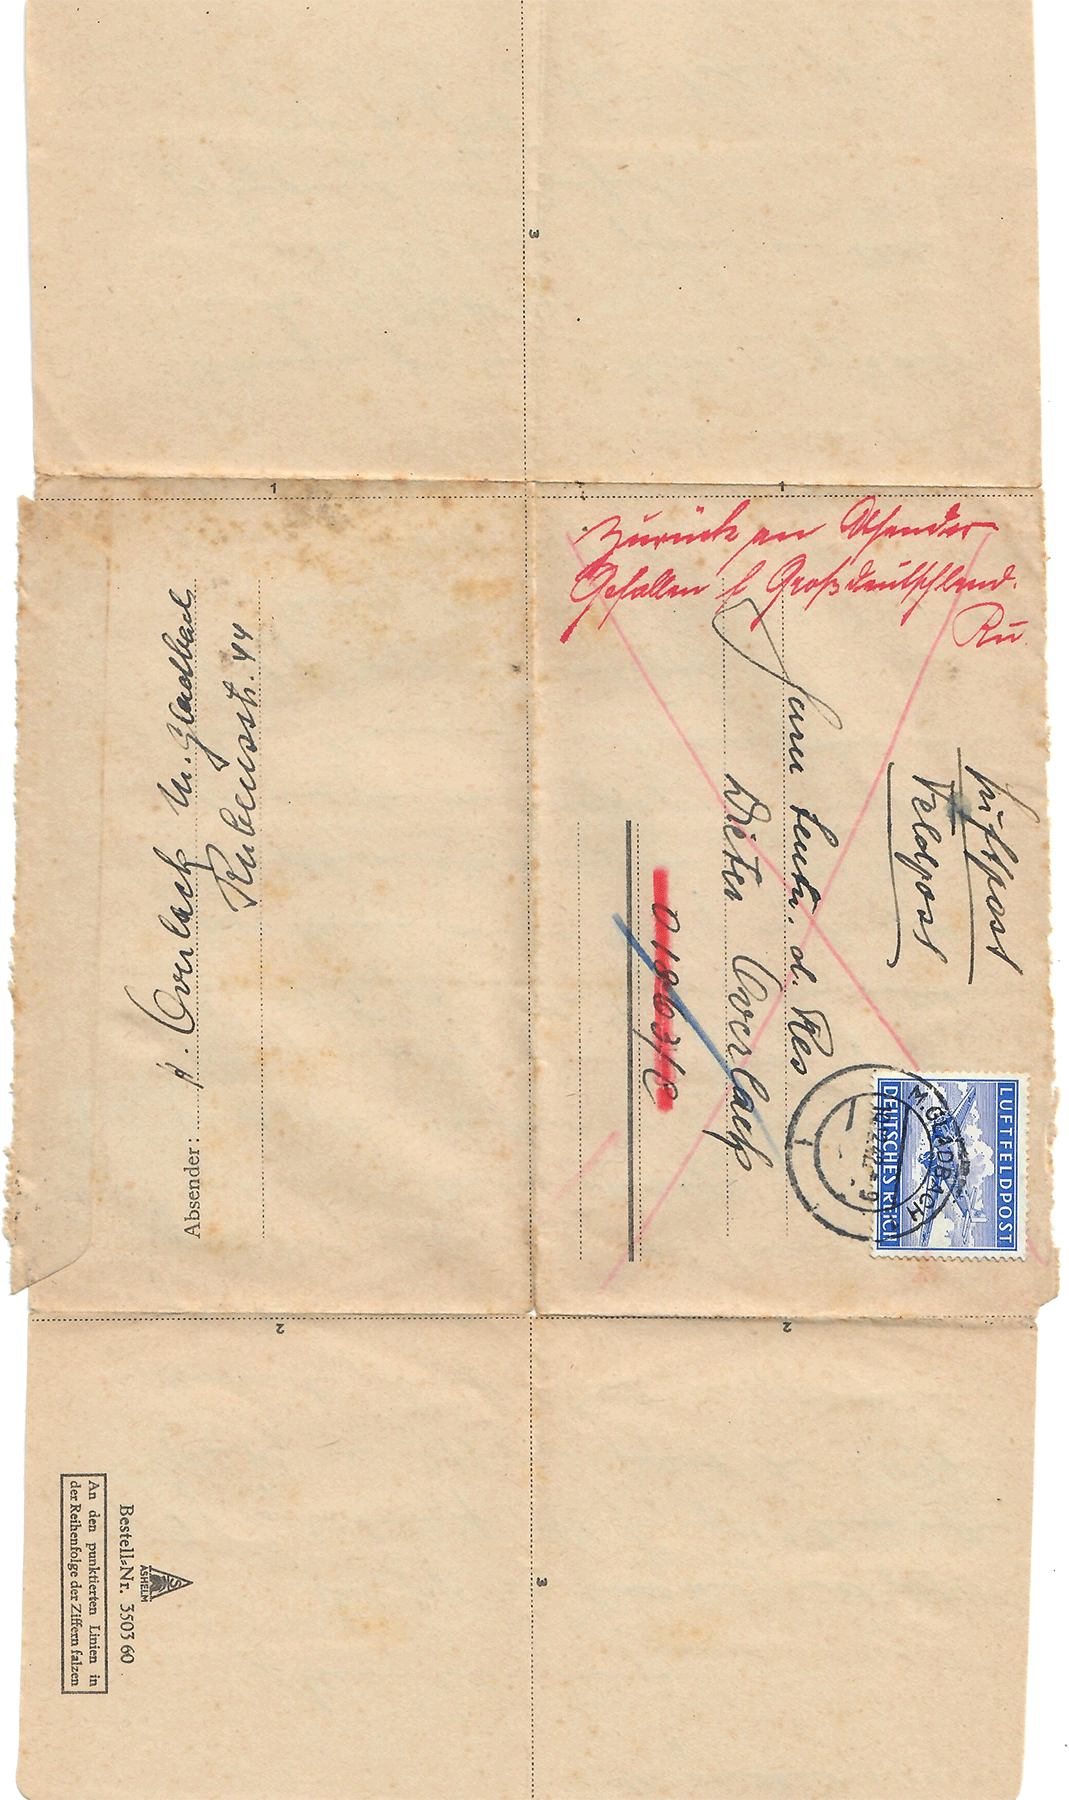 Zurück an Absender
Gefallen f. Großdeutschland.
Ru
Luftpost
Feldpost
Herrn Leutn. d. Res
Dieter Overlack
01863/C
LUFTFELDPOST
DEUTSCHES REICH
M. GLADBACH
Absender:
H. Overlack M. Gladbach
Rubensstr. 44
1
1
2
2
3
3
ASHELM
Bestell-Nr. 3503 60
An den punktierten Linien in
der Reihenfolge der Ziffern falzen